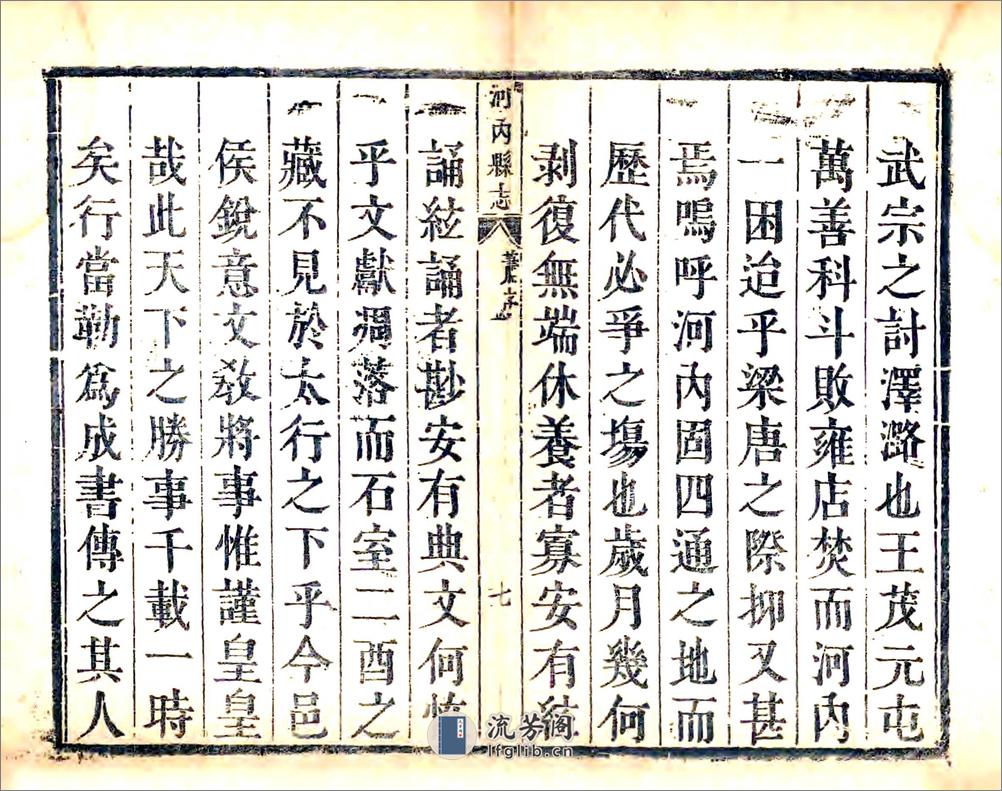 武宗之討澤潞也王茂元屯
萬善科斗敗雍店焚而河內
一困迨乎梁唐之際抑又甚
焉嗚呼河內固四通之地而
歷代必爭之場也歲月幾何
剥復無端休養者寡安有絃
河內縣志
舊序
七
誦絃誦者尠安有典文何怪
乎文獻凋落而石室二酉之
藏不見於太行之下乎今邑
侯銳意文敎將事惟謹皇皇
哉此天下之勝事千載一時
矣行當勒爲成書傳之其人
流芳阁
lfglib.cn